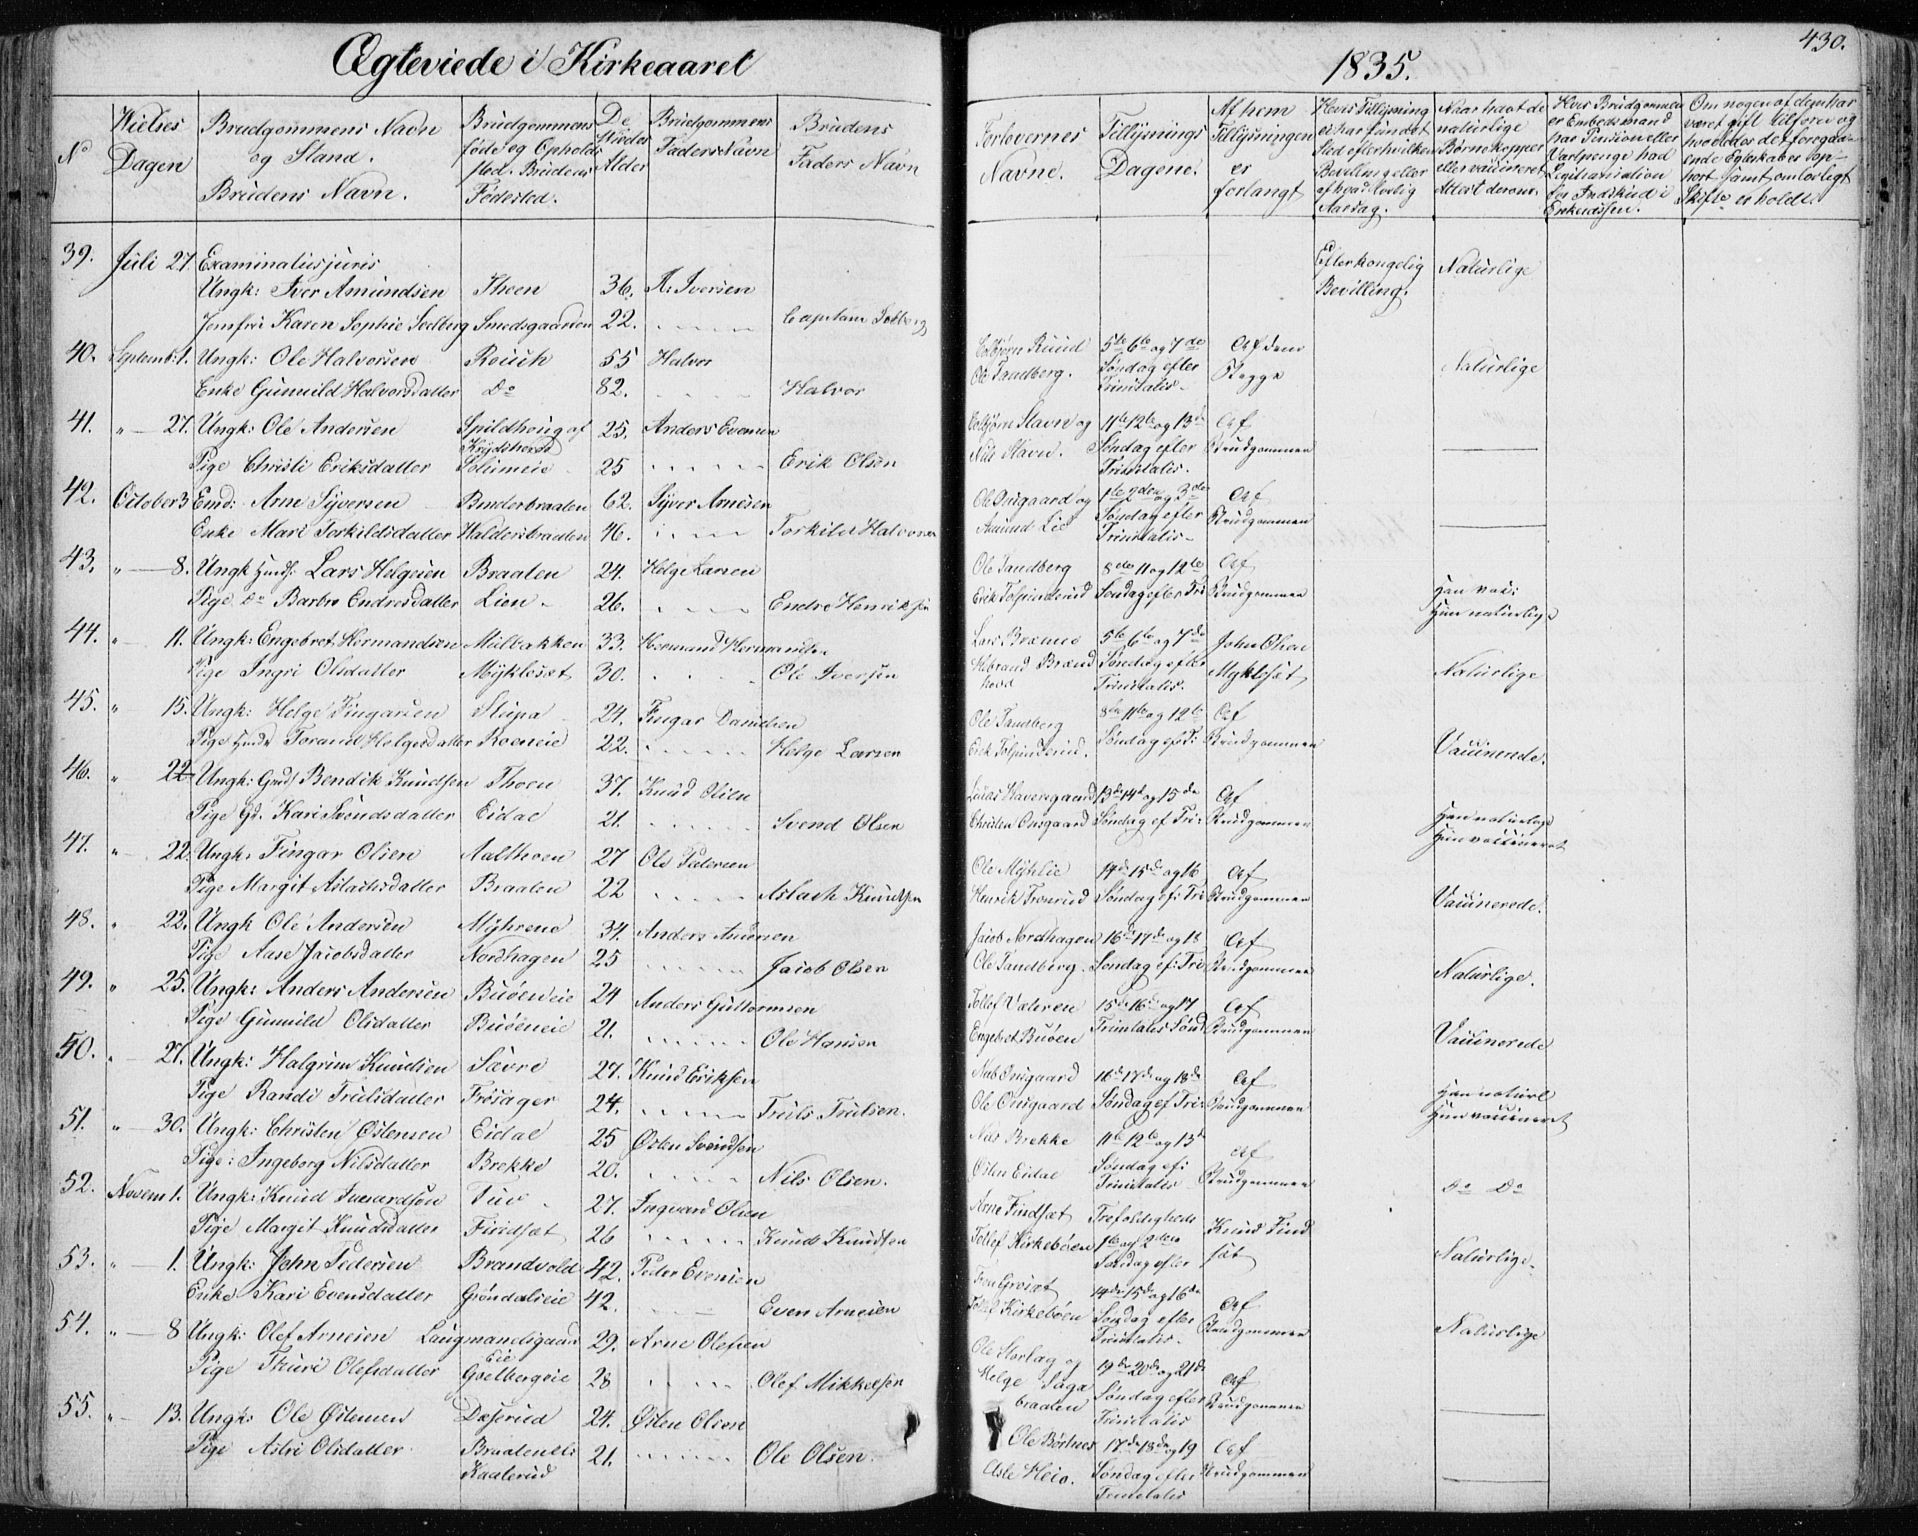 Ægteviede i Kirkeaaret
1835.
430.
No
Vielses Dagen
Brudgommens Navn og Stand. Brudens Navn.
Brudgommens føde og Opholds sted. Brudens Fødested.
De Viedes Alder
Brudgommens Faders Navn
Brudens Faders Navn
Forlovernes Navne.
Tillysnings Dagene.
Af hvem Tillysningen er forlangt
Hvis Tillysning ei har fundet Sted efter hvilken Bevilling eller af hvad lovlig Aarsag.
Naar havt de naturlige Børnekopper eller vaccineret Attest derom.
Hvis Brudgommen er Embedsmand har Pension eller Vartpenge had Legitimation for Indskud i Enkecassen.
Om nogen af dem har været gift tilforn og hvorledes det foregaaende Egteskab er ophørt samt om lovligt Skifte er holdt.
39. Juli 27 Examinatus juris
Ungk: Iver Amundsen Thoen 36. A: Iversen Efter kongelig Bevilling. Naturlige
Jomfru Karen Sophie Seelberg Smedsgaarden 22. Capitain
40. Septemb: 1. Ungk: Ole Halvorsen 55 Halvor Ruud 5te 6te og 7de Af dem
Enke Gunnild Halvorsdatter Do 82. Halvor Ole Sandberg. Søndag efter Trinitatis Begge Naturlige
41. " 27. Ungk: Ole Andersen Spildhoug af 25. Anders Evensen Stavn og 11te 12te og 13de Af
Pige Christi Eriksdatter 25 Erik Olsen Nils Stavn. Søndag efter Trinitatis. Brudgommen
42. October 3 Emd: Arne Syversen Binderbraaten 62. Syver Arnesen Ole Onsgaard og 1te 2den og 3die Af
Enke Mari Torkildsdatter Haldersbraaten 46. Torkild Halvorsen Amund Lie Søndag efter Trinitatis Brudgommen
43. " 8. Ungk Huusf: Lars Helgesen Braaten 24. Helge Larsen Ole Sandberg 8de 11 og 12te Af
Pige Do Barbro Endresdatter Lien 26. Endre Henriksen Erik Søndag efter Tri Brudgommen Han vac: Hun naturlige
44. " 11. Ungk: Engebret Hermandsen Milbakken 33. Hermand Hermandsen Lars 5te 6te og 7de John Olsen
Pige Ingri Olsdatter Myklesæt 30. Ole Iversen Søndag efter Trinitatis. Myklesæt Naturlige
45. " 15. Ungk: Helge Fingarsen Stupa 24. Fingar Danielsen Ole Sandberg 8de 11te og 12te Af
Pige Huusf Torand Helgesdatter Roeneie 22. Helge Larsen Erik Søndag ef: Brudgommen Vaccinerede.
46. " 22 Ungk: Gmd: Bendik Knudsen Thoen 37. Knud Olsen 13de 14de og 15de Af
Pige Gd. Kari Svendsdatter Eidal 21. Svend Olsen Christen Onsgaard Søndag ef Tri: Brudgommen Han naturlige Hun vaccineret
47. " 22. Ungk: Fingar Olsen Aalthoen 27 Ole Pedersen Ole Myhlie 14de 15de og 16 Af
Pige Margit Aslachsdatter Braaten 22 Aslach Knudsen Henrik Søndag ef: Tri Brudgommen Vaccinerede.
48. " 22. Ungk Ole Andersen Myhrene 34. Anders Jacob Nordhagen 16de 17de og 18 Af
Pige Aase Jacobsdatter Nordhagen 25 Jacob Olsen Ole Sandberg. Søndag ef: Tri Brudgommen Naturlige.
49. " 25. Ungk: Anders Andersen Buøeneie 24 Anders Guttormsen Tollef 15de 16de og 17 Af
Pige Gunnild Olsdatter Buøeneie 21. Ole Hansen Engebret Buøen Trinitatis Sønd Brudgommen Vaccinerede
50. " 27. Ungk: Halgrim Knudsen Sævre 27. Knud Eriksen Onsgaard 16de 17de og 18de Af
Pige Randi Trulsdatter Frøsager 24. Truls Trulsen. Ole Onsgaard Søndag ef Tri: Brudgommen Han naturl Hun vaccineret
51. " 30. Ungk: Christen Østensen Eidal 25 Østen Svendsen Nils Brekke 11te 12te og 13de Af
Pige: Ingeborg Nilsdatter Brekke 20. Nils Olsen. Østen Eidal Søndag ef: Trinitatis Brudgommen Do Do
52. Novem 1. Ungk: Knud Tuv 27. Ingvard Olsen Arne Findsæt Trefoldigheds Knud Findsæt
Pige Margit Knudsdatter Findsæt 26 Knud Knudsen Tollef Kirkebøen 1te og 2den Søndag efter
53. " 1. Ungk: John Pedersen Brandvold 42. Peder Evensen 14de 15de og 16de Af Naturlige.
Enke Kari Evensdatter Grøndalseie 42. Even Arnesen Tollef Kirkebøen Søndag efter Trinitatis. Brudgommen
54. " 8 Ungk: Olef Arnesen Laugmandsgaard Eie 29. Arne Olefsen Ole Storlag og 19de 20de og 21de Af Naturlige
Pige Thuri Olefsdatter Golbergeie 28 Olef Mikkelsen Helge Sagabraaten Søndag efter Trinitatis Brudgommen
55. " 13. Ungk: Ole Østensen Dæserud 24. Østen Olsen Ole Børtnes 17de 18de og 19 Af
Pige Astri Olsdatter Braateneie Kaalerud 21. Ole Olsen. Asle Heio. Søndag efter Trinitatis Brudgommen